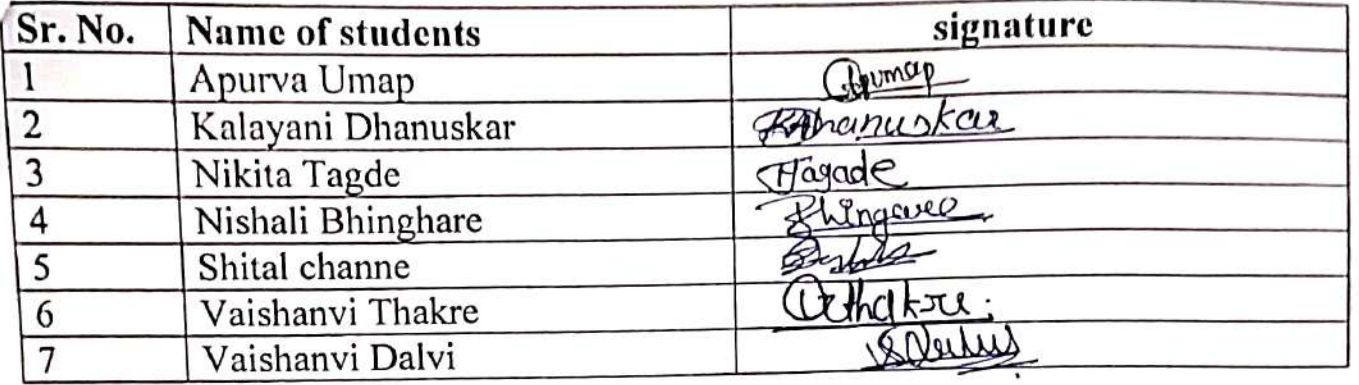 Sr. No. Name of students signature
1 Apurva Umap Apumap
2 Kalayani Dhanuskar KDhanuskar
3 Nikita Tagde Tagade
4 Nishali Bhinghare
5 Shital channe
6 Vaishanvi Thakre
7 Vaishanvi Dalvi